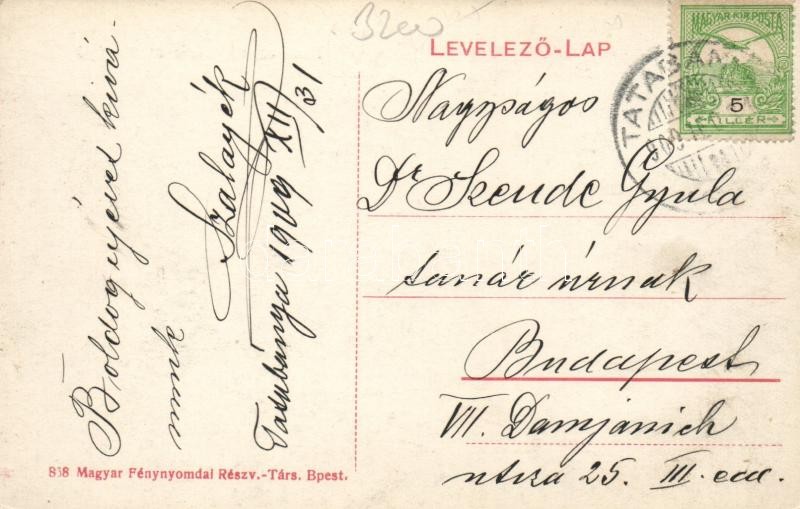 Boldog ujévet kivá-
nunk
Szalayék
Tatabánya 1909 XII/31
B200
LEVELEZŐ-LAP
MAGYAR KIR. POSTA
5
FILLÉR
TATABÁN
Nagyságos
Dr Szende Gyula
tanár úrnak
Budapest
VII. Damjanich
utcza 25. III. em.
838 Magyar Fénynyomdai Részv.-Társ. Bpest.